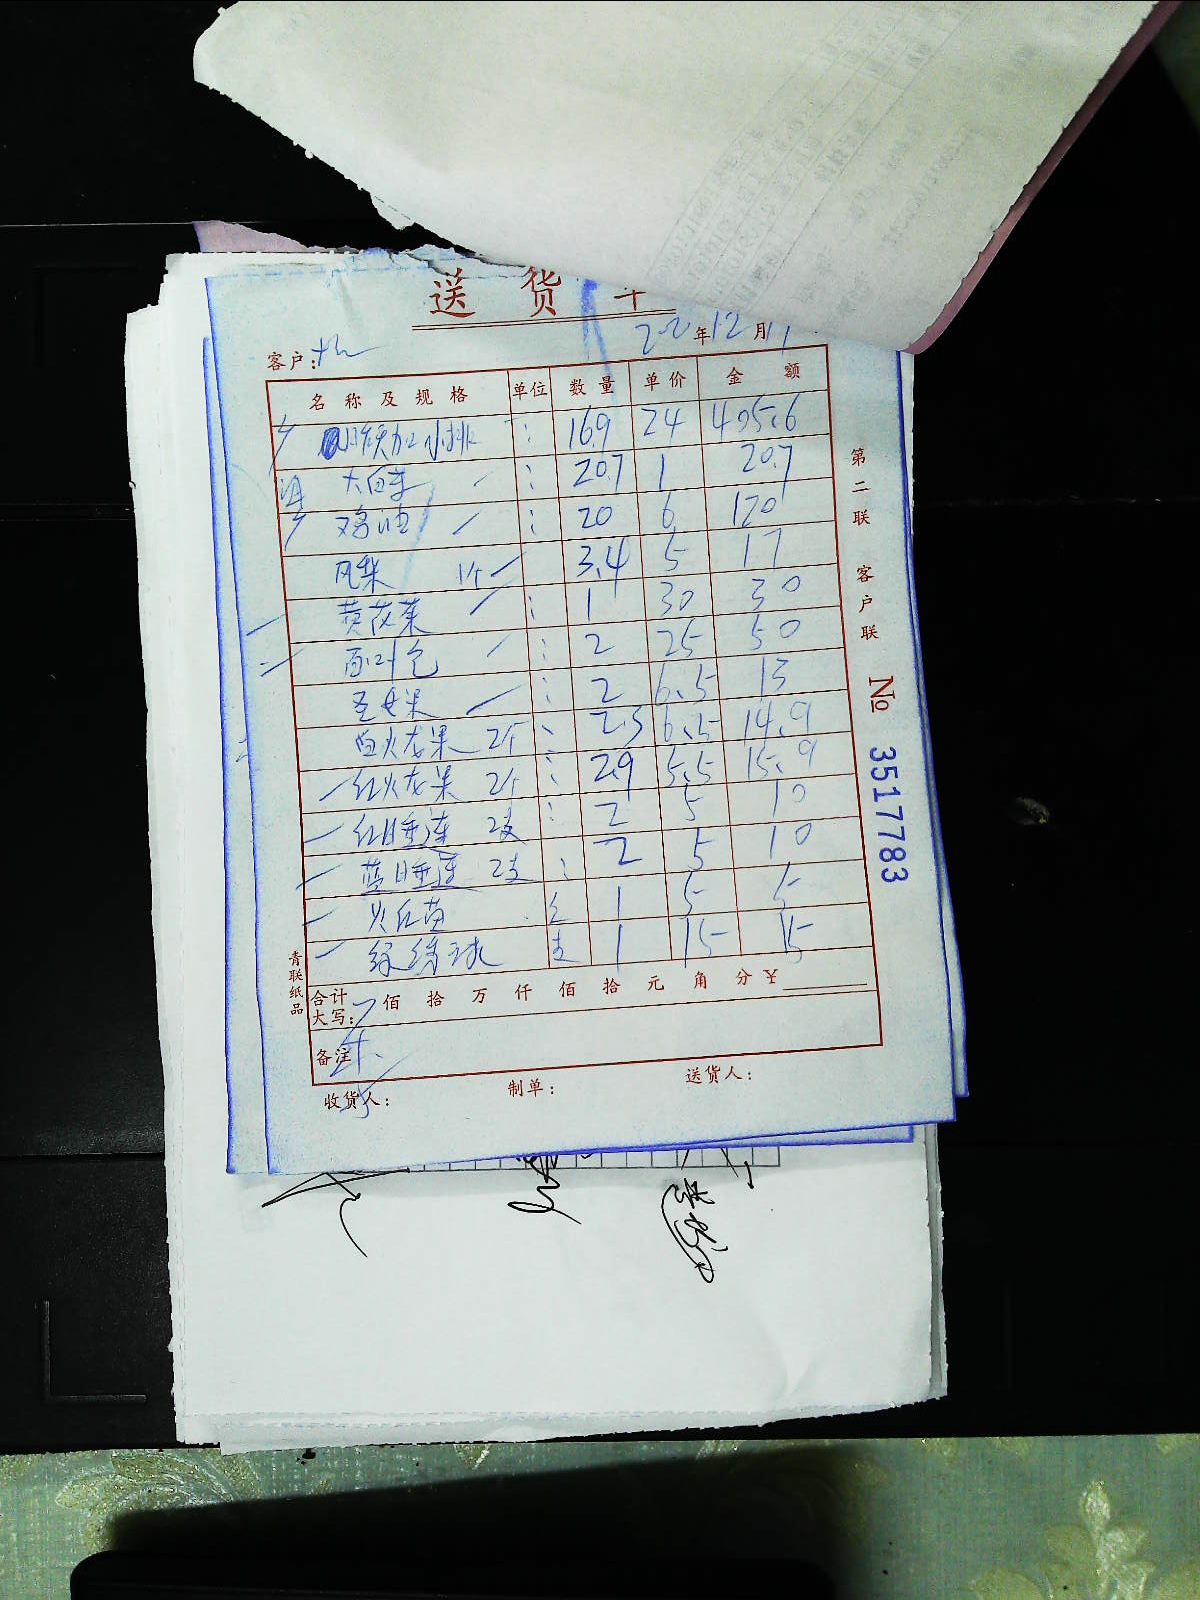 送 货 单
22年12月1
客户:
名 称 及 规 格 单位 数 量 单 价 金 额
小排 : 16.9 24 405.6
大白菜 : 20.7 1 20.7
鸡油 : 20 6 120
凤梨 1个 3.4 5 17
黄茨菜 : 1 30 30
百叶包 : 2 25 50
圣女果 : 2 6.5 13
白火龙果 2个 2.3 6.5 14.9
红火龙果 2个 : 2.9 5.5 15.9
红睡莲 2支 : 2 5 10
蓝睡莲 2支 : 2 5 10
火红苗 1 5 5
绿绣球 支 1 15 15
合计大写: 佰 拾 万 仟 佰 拾 元 角 分 ¥
备注
收货人: 制单: 送货人:
第二联 客户联 № 3517783
青联纸品